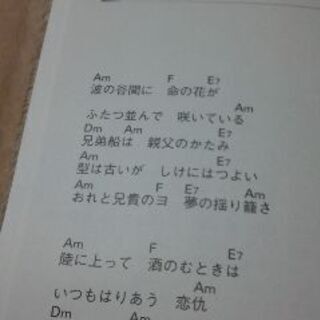 Am F E7
波の谷間に 命の花が
Am
ふたつ並んで 咲いている
Dm Am E7
兄弟船は 親父のかたみ
Am
型は古いが しけにはつよい
Am F E7 Am
おれと兄貴のヨ 夢の揺り籠さ
Am F E7
陸に上って 酒のむときは
Am
いつもはりあう 恋仇
Dm Am